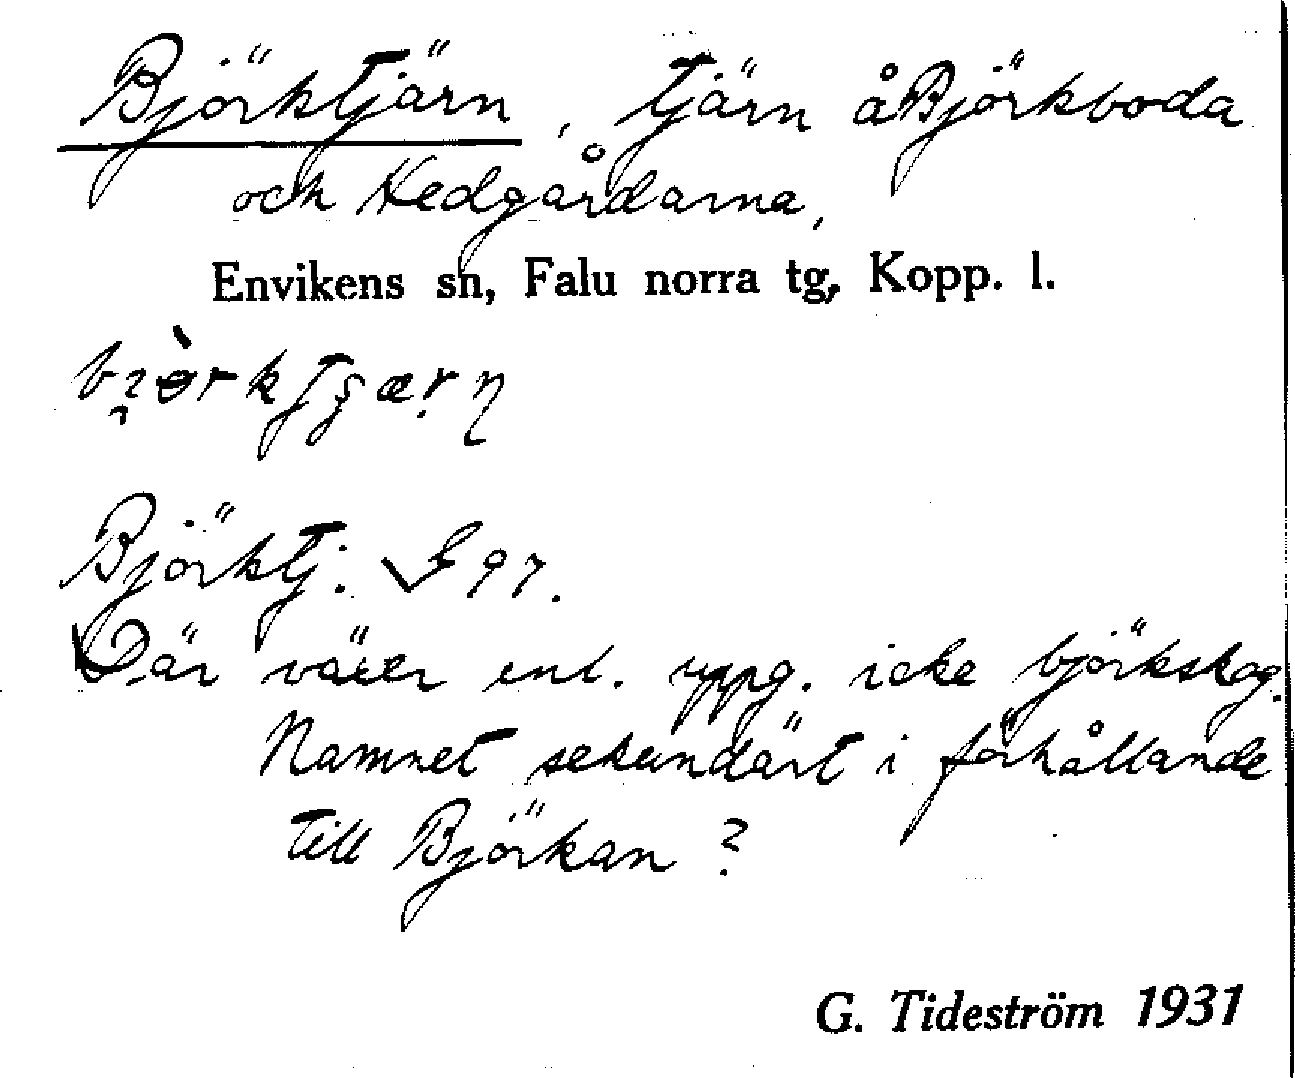 Björktjärn, tjärn å Björkboda
och Hedgårdarna,
Envikens sn, Falu norra tg, Kopp. l.
Björktj. G 97.
Där växer enl. uppg. icke björkskog.
Namnet sekundärt i förhållande
till Björkan?
G. Tideström 1931